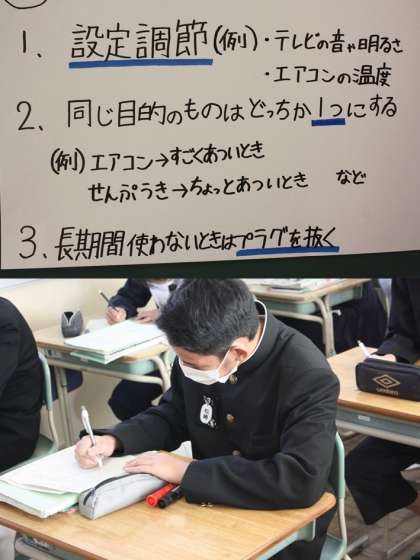 1、設定調節(例)・テレビの音や明るさ
・エアコンの温度
2、同じ目的のものはどっちか1つにする
(例)エアコン→すごくあついとき
せんぷうき→ちょっとあついとき など
3、長期間使わないときはプラグを抜く
umbro